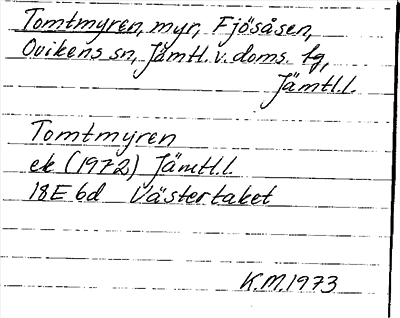 Tomtmyren, myr, Fjösåsen,
Ovikens sn, Jämtl. v. doms. tg,
Jämtl.l.
Tomtmyren
ek (1972) Jämtl.l.
18E 6d Västertaket
K.M.1973